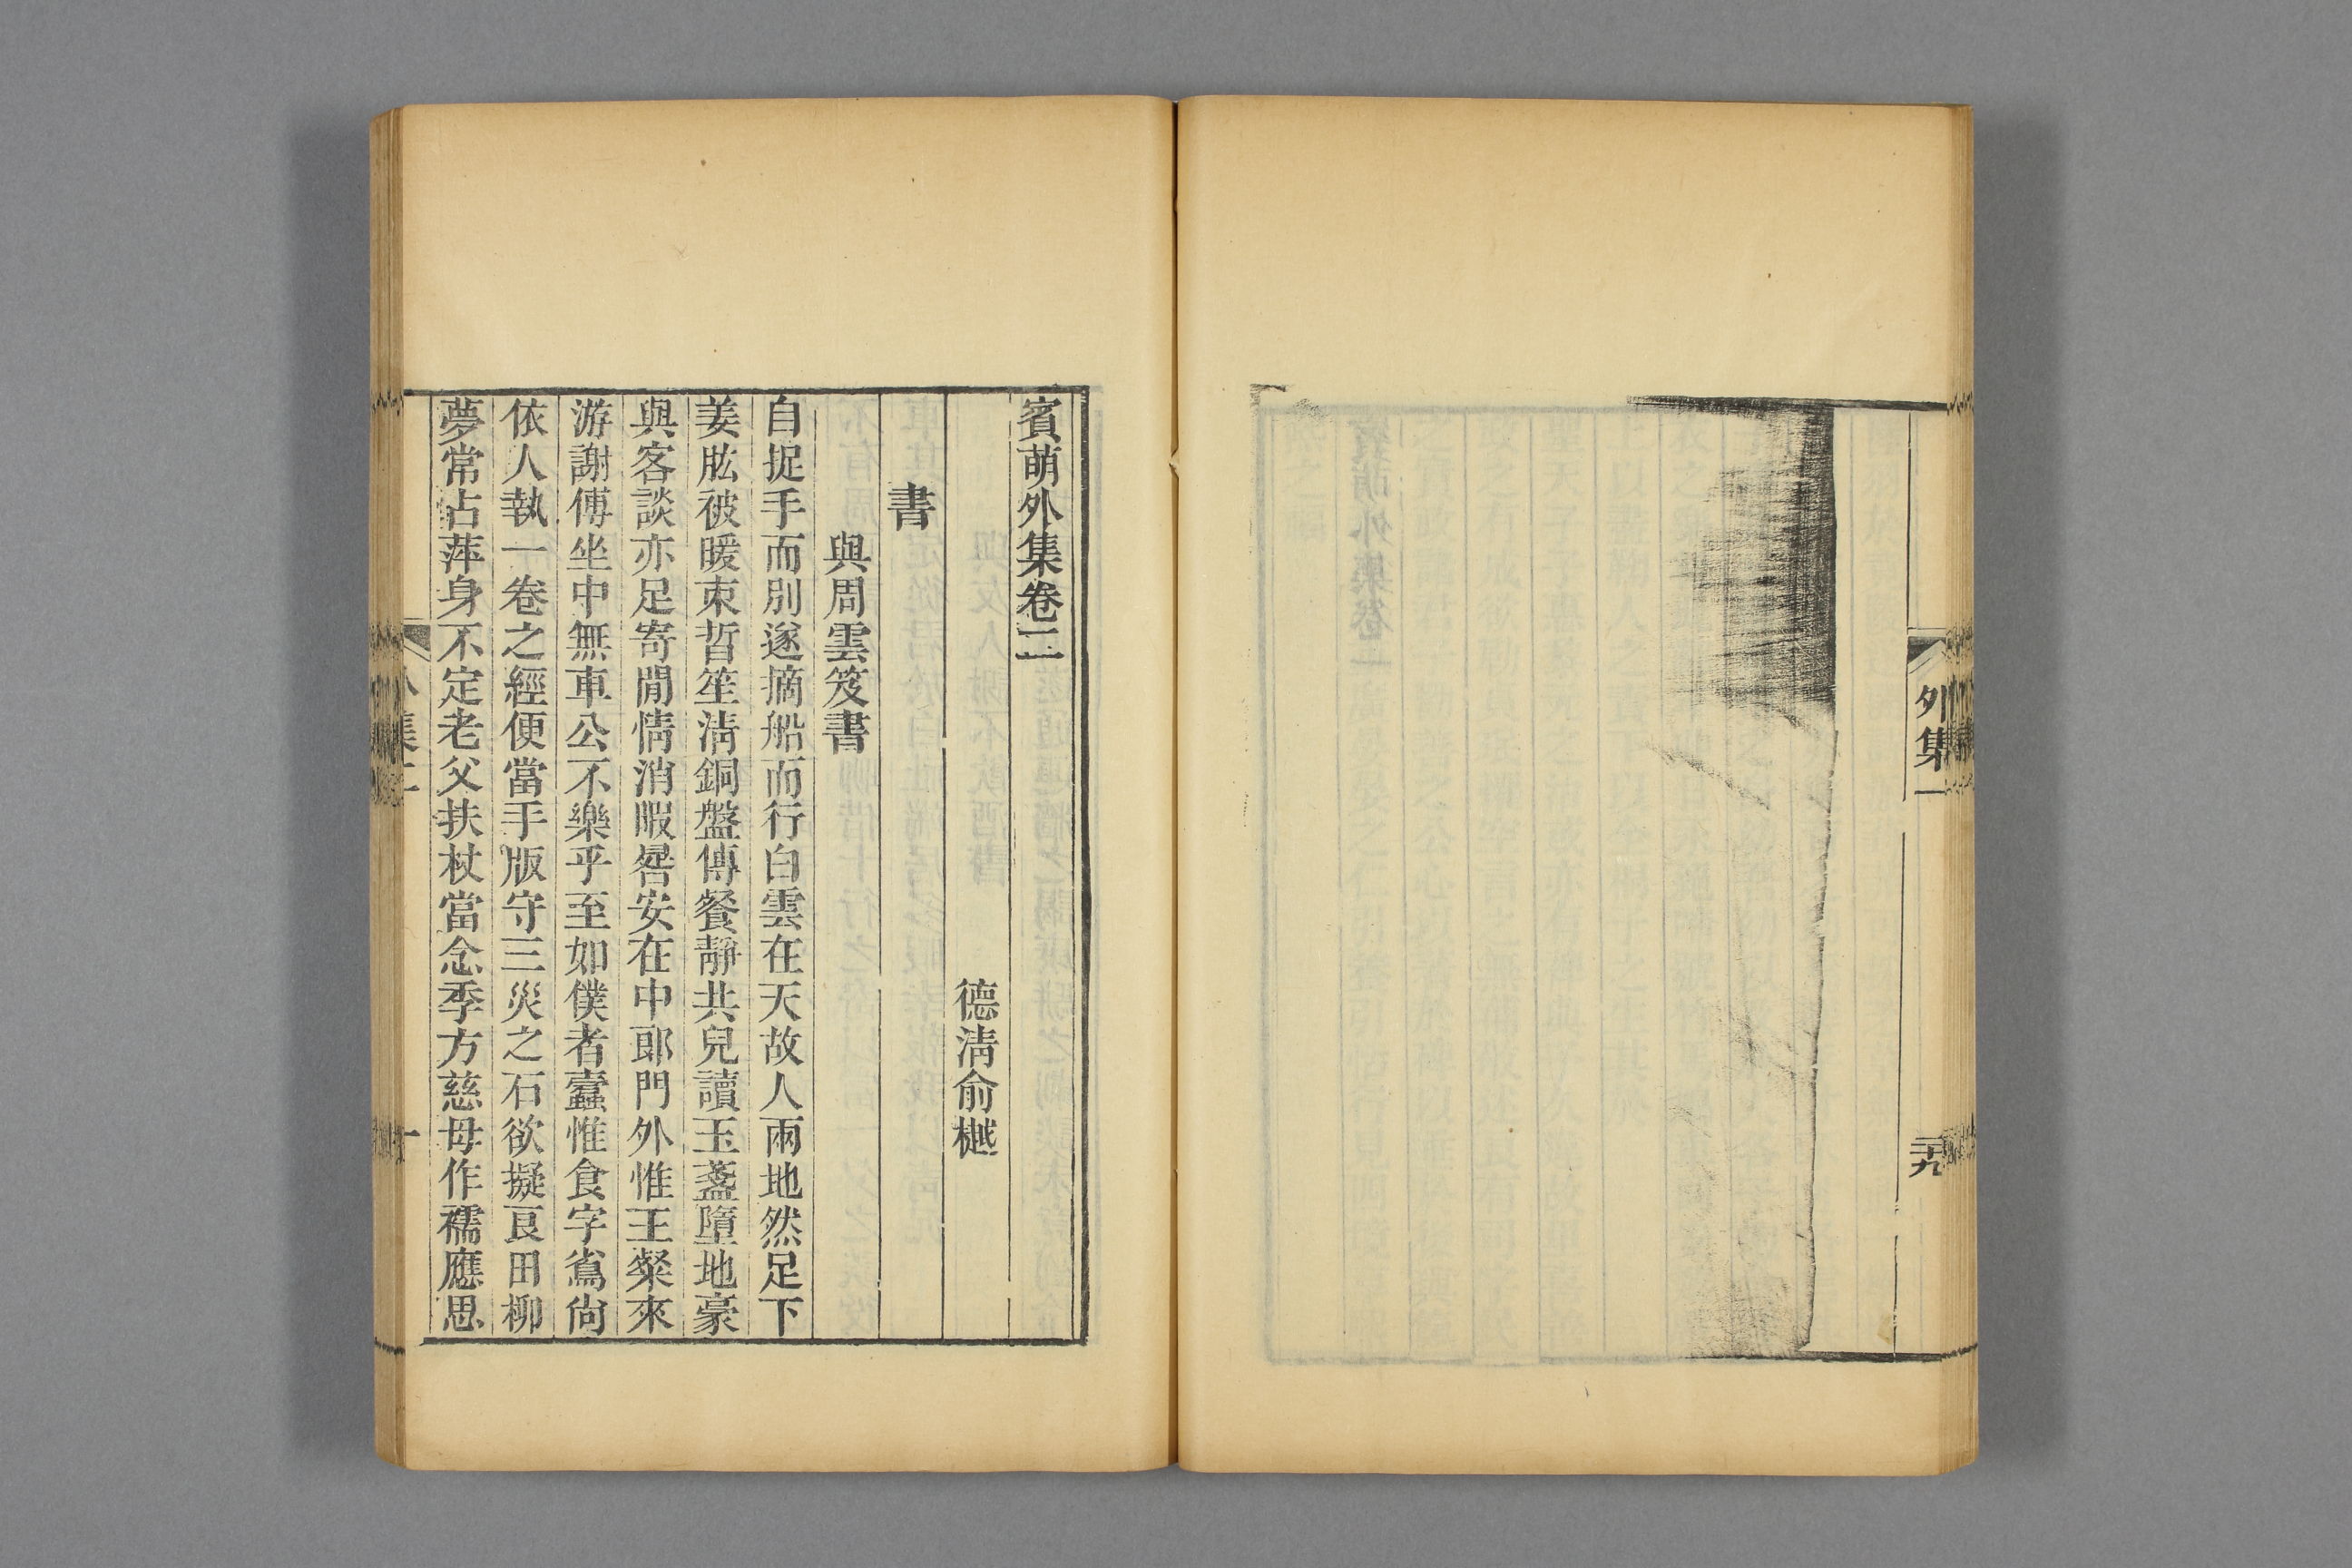 外集一
二十九
賓萌外集卷二
德清俞樾
書
與周雲笈書
自捉手而別遂摘船而行白雲在天故人兩地然足下
姜肱被暖束晳笙清銅盤傳餐靜共兒讀玉盞墮地豪
與客談亦足寄閒情消暇晷安在中郎門外惟王粲來
游謝傅坐中無車公不樂乎至如僕者蠹惟食字鴛尙
依人執一卷之經便當手版守三災之石欲擬良田柳
夢常占萍身不定老父扶杖當念季方慈母作襦應思
集二
一